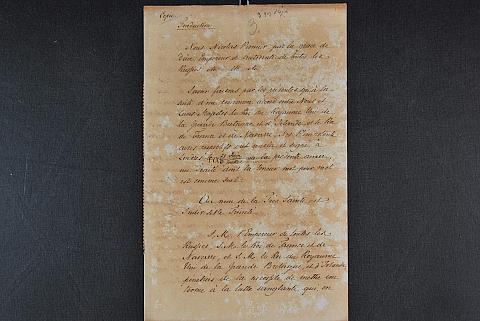 Copie
Traduction.
3
Nous Nicolas Premier par la grace de
Dieu Empereur et Autocrate de toutes les
Russies etc etc
Savoir faisons par les présentes qu'à la
suite d'un commun accord entre Nous et
Leurs Majestés le Roi du Royaume Uni de
la Grande Bretagne et d'Irlande et le Roi
de France et de Navarre, Nos
ont arrêté et signé à
Londres le juin
juillet de la présente année,
un Traité dont la teneur mot pour mot
est comme suit:
Au nom de la Très Sainte et
Indivisible Trinité.
S. M. l'Empereur de toutes les
Russies, S. M. le Roi de France et de
Navarre, et S. M. le Roi du Royaume
Uni de la Grande Bretagne, et d'Irlande
pénétrés de la nécessité de mettre un
terme à la lutte sanglante, qui, en